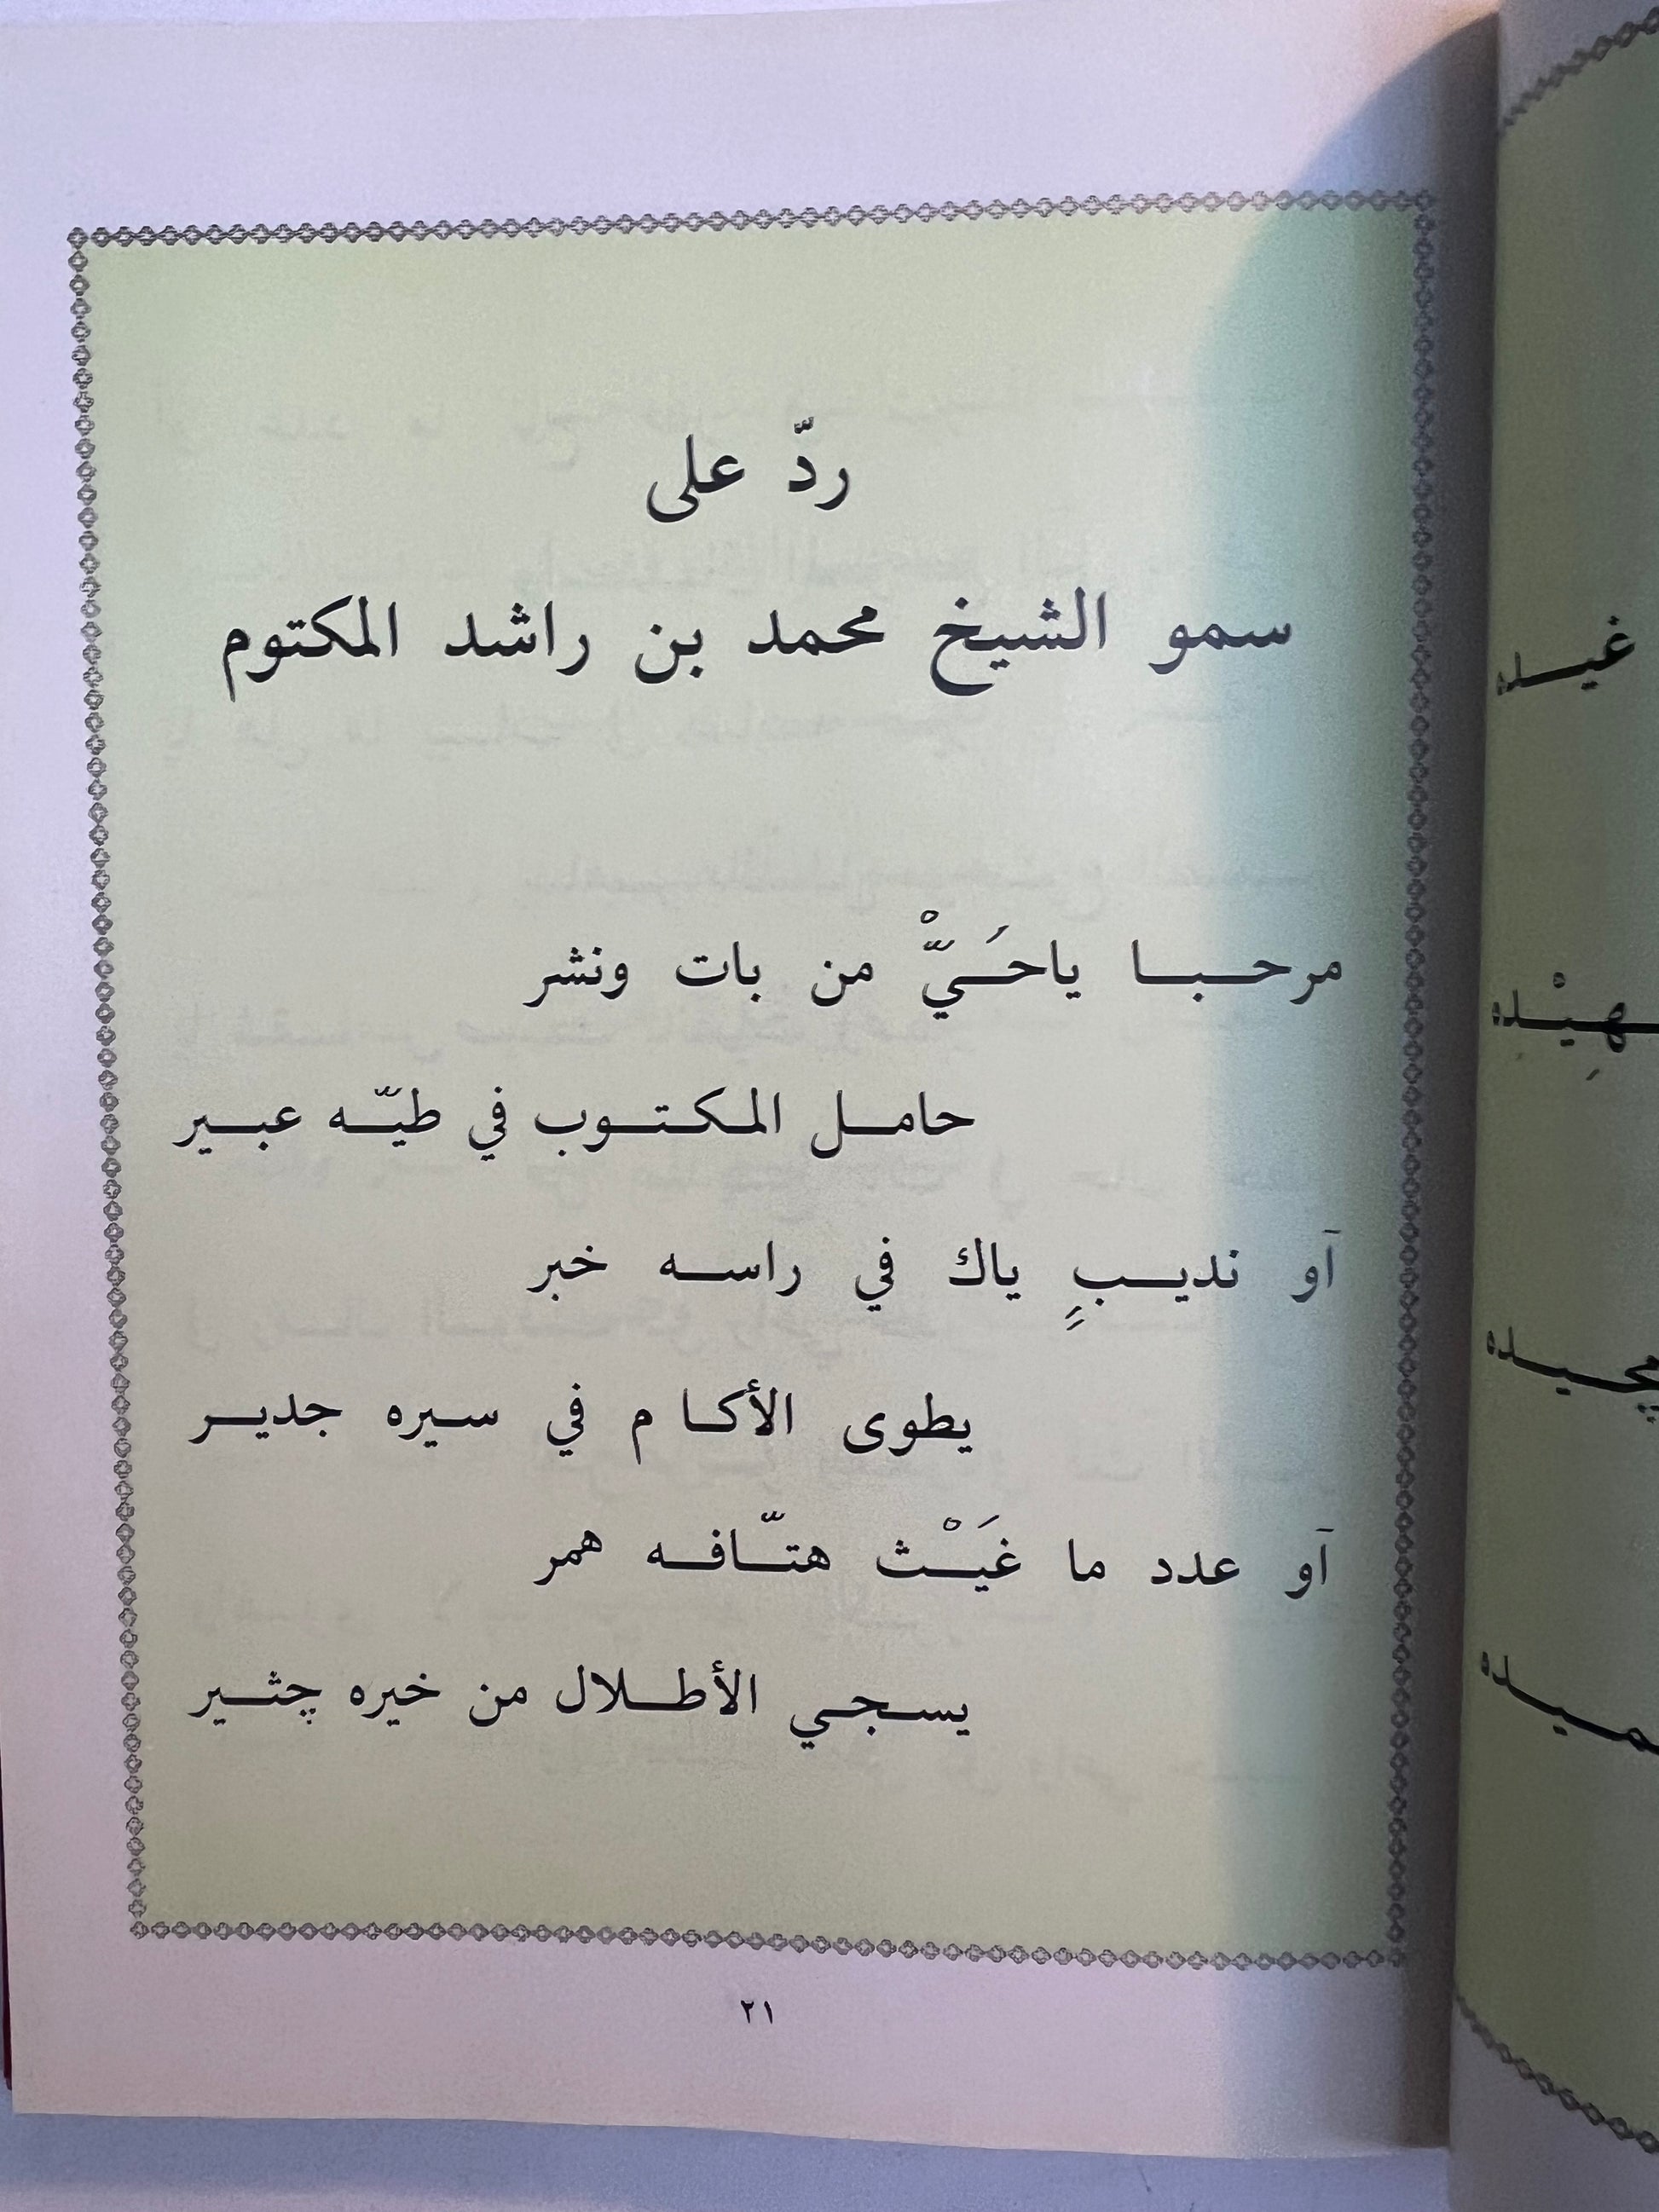 ردّ على
سمو الشيخ محمد بن راشد المكتوم
مرحبا ياحَيّْ من بات ونشر
حامل المكتوب في طيّه عبير
آو نديبٍ ياك في راسه خبر
يطوى الأكام في سيره جدير
آو عدد ما غَيْث هتّافه همر
يسجي الأطلال من خيره چثير
٢١
غيده